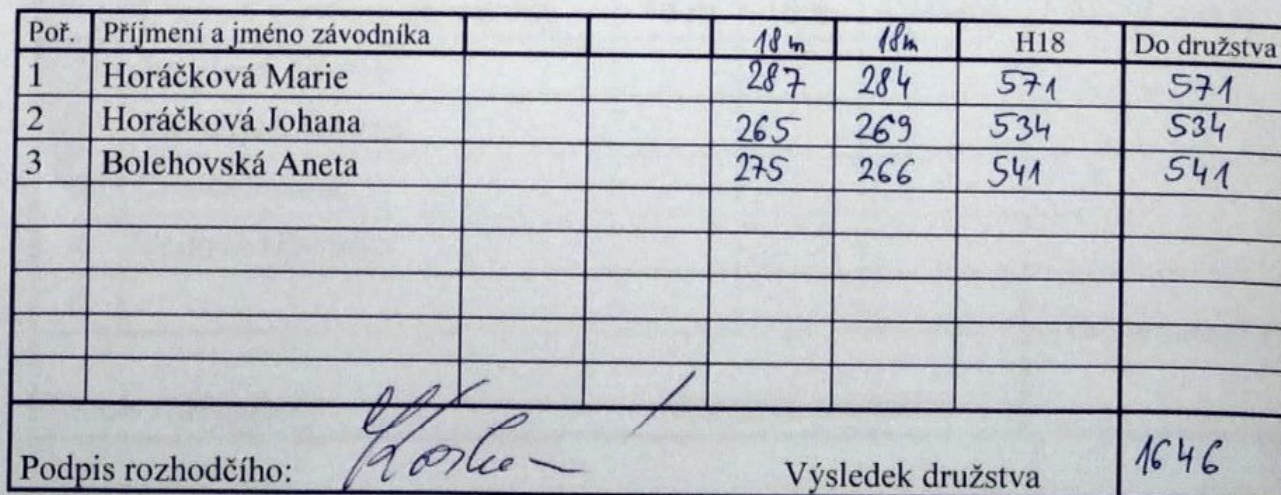 Poř. Příjmení a jméno závodníka 18m 18m H18 Do družstva
1 Horáčková Marie 287 284 571 571
2 Horáčková Johana 265 269 534 534
3 Bolehovská Aneta 275 266 541 541
Podpis rozhodčího: Výsledek družstva 1646